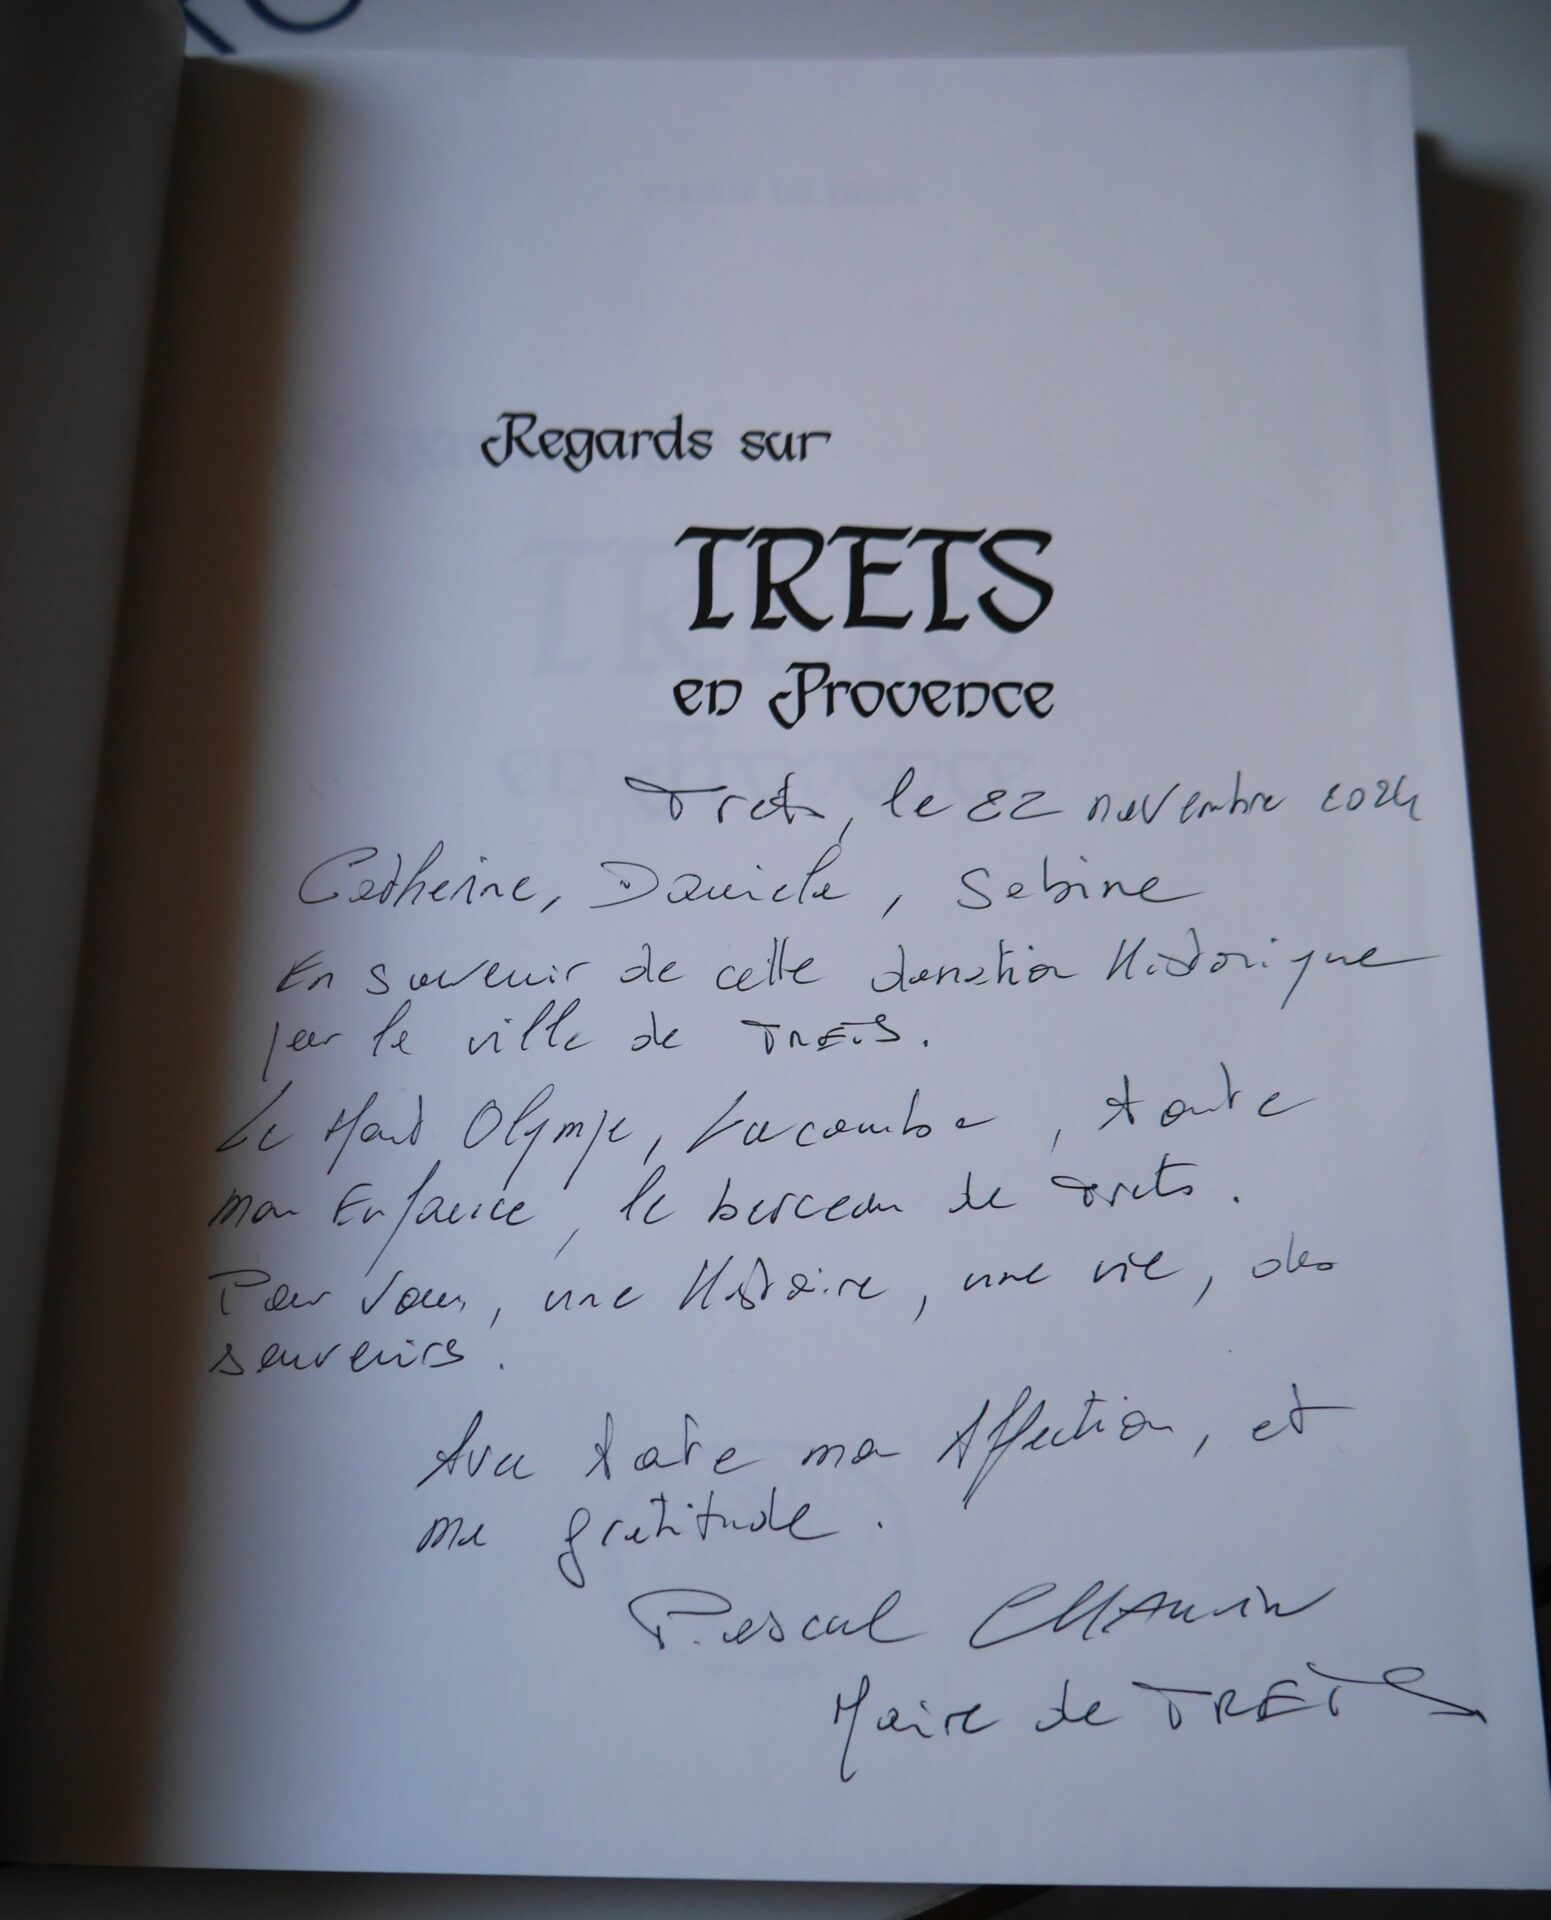 Regards sur
TRETS
en Provence
Trets, le 22 novembre 2024
Catherine, Danièle, Sabine
En souvenir de cette donation Historique
par la ville de TRETS.
Le Mont Olympe, Lacombe, toute
mon Enfance, le berceau de Trets.
Pour vous, une Histoire, une vie, des
souvenirs.
Avec toute mon Affection, et
ma gratitude.
Pascal CHAUVIN
Maire de TRETS